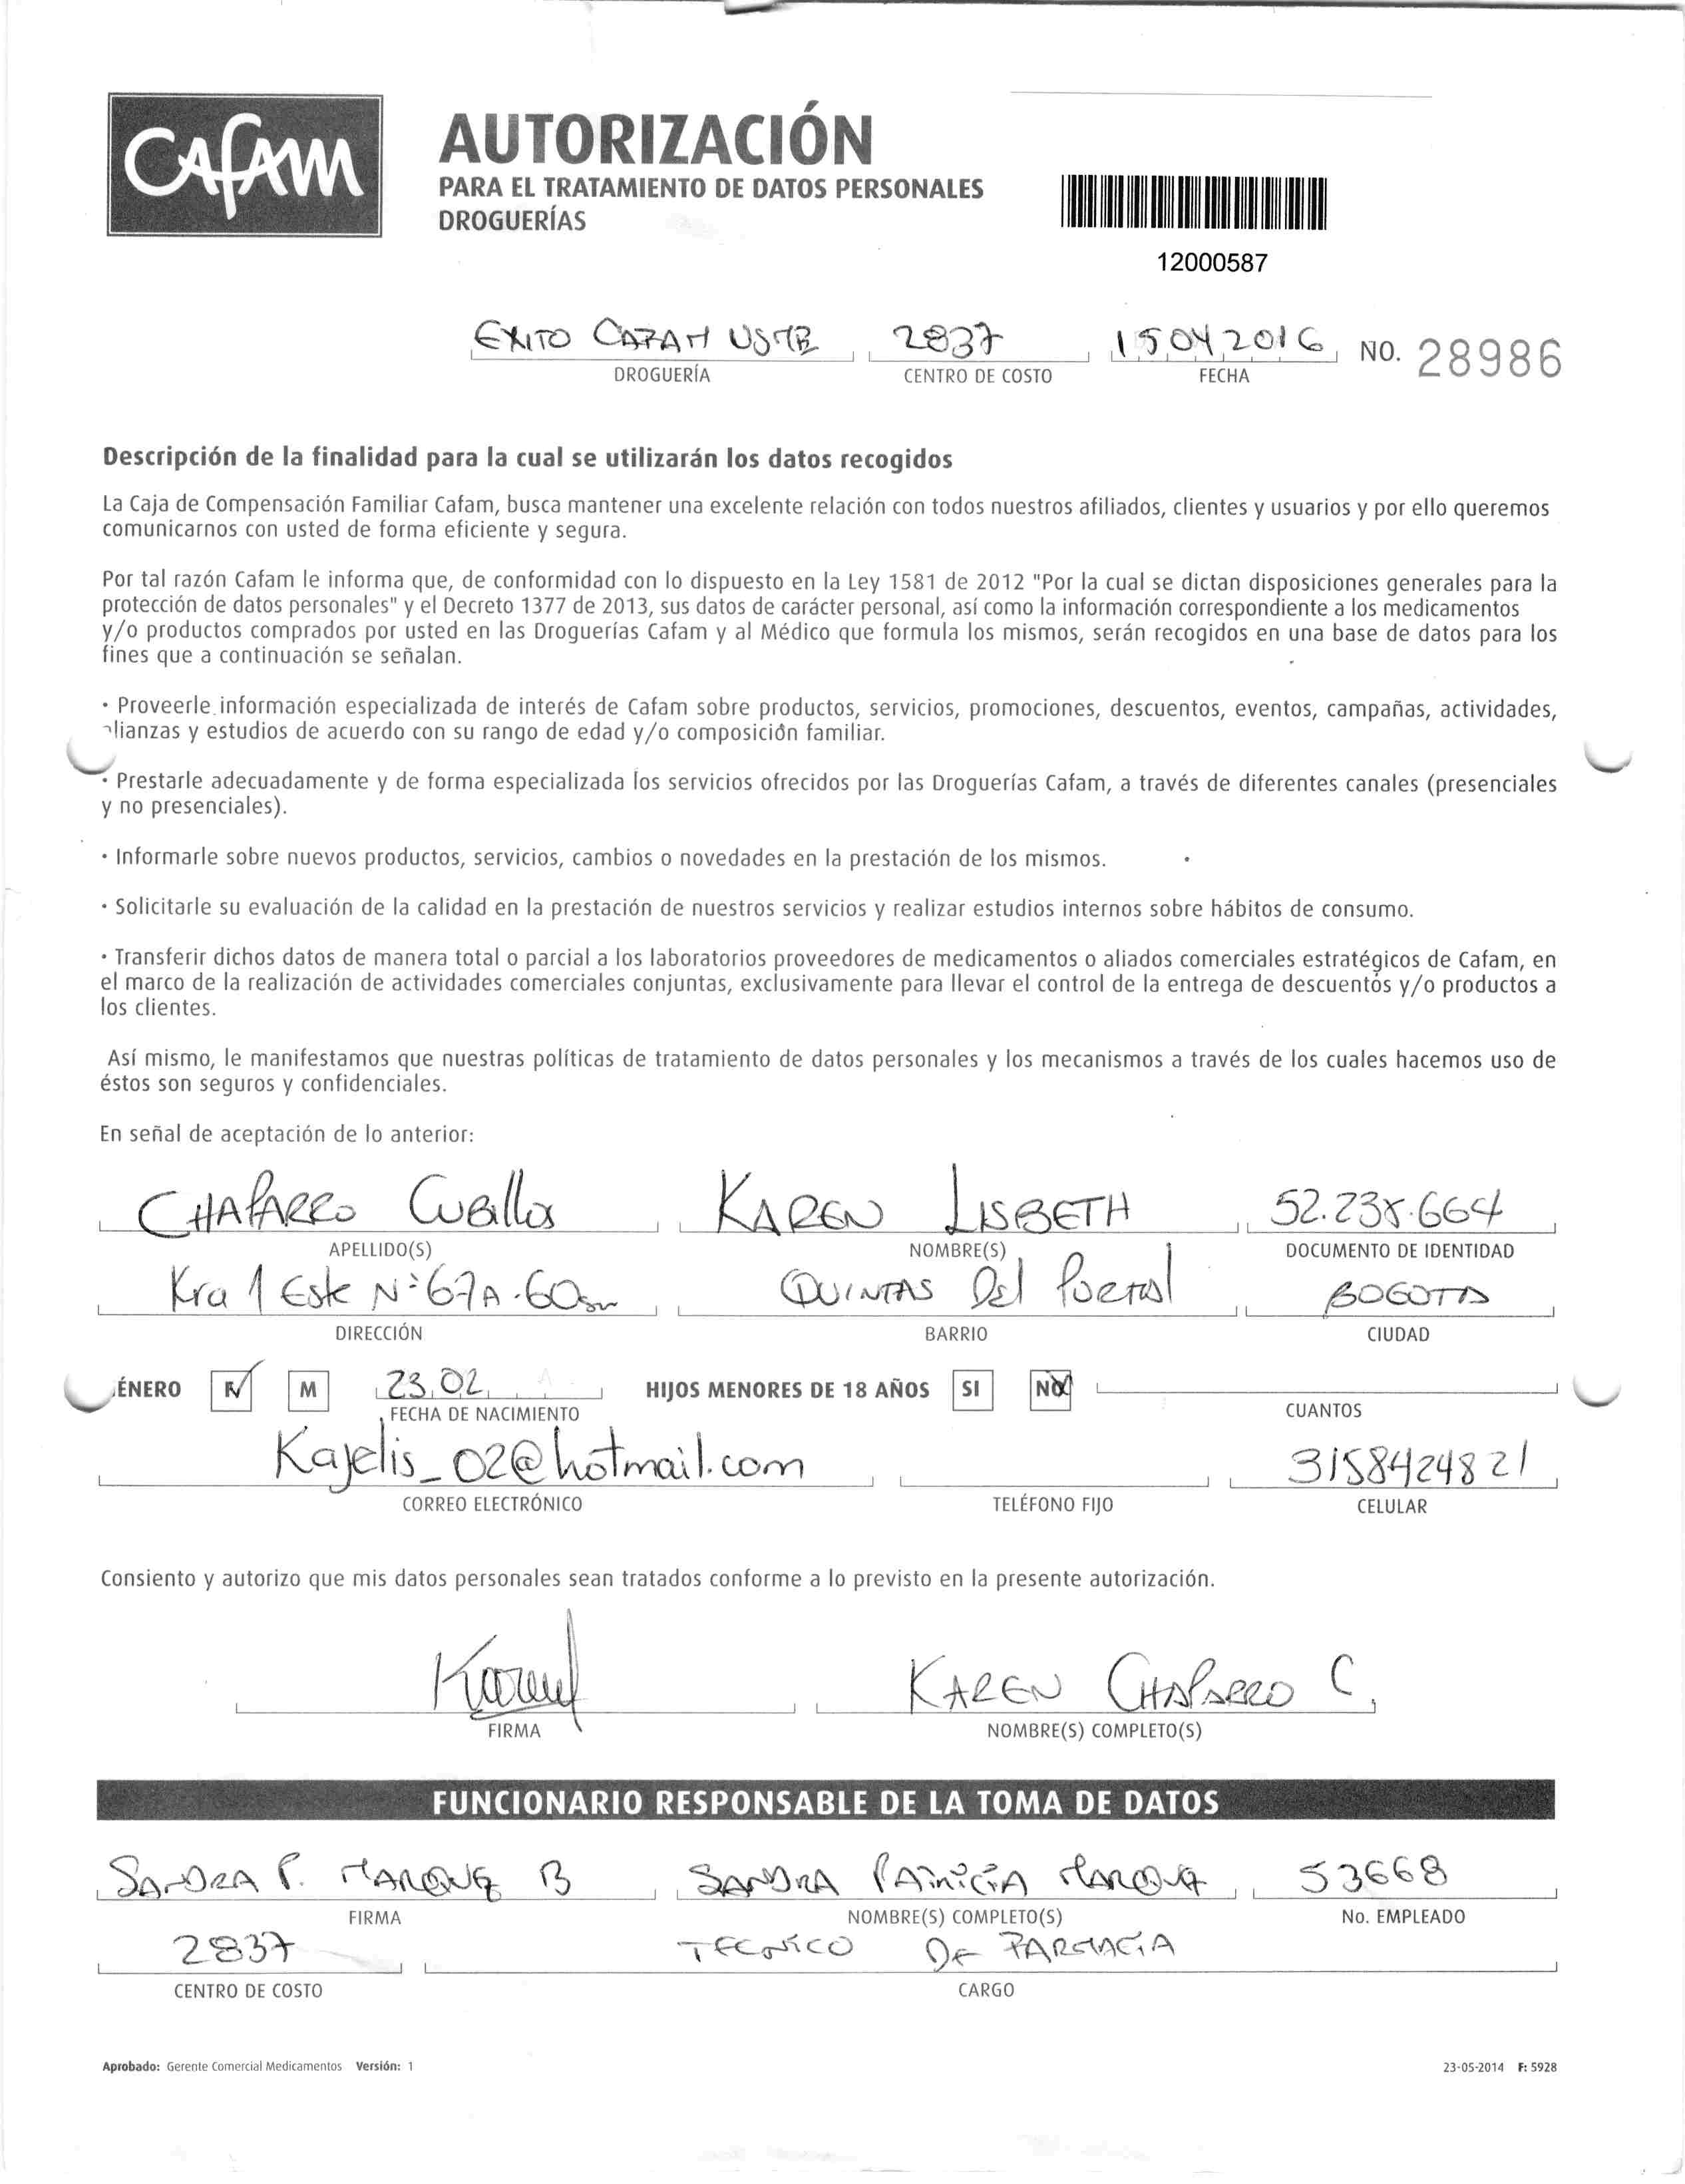 CAFAM
AUTORIZACIÓN
PARA EL TRATAMIENTO DE DATOS PERSONALES
DROGUERÍAS
12000587
EXITO CAFAM 2837 15042016 NO. 28986
DROGUERÍA CENTRO DE COSTO FECHA
Descripción de la finalidad para la cual se utilizarán los datos recogidos
La Caja de Compensación Familiar Cafam, busca mantener una excelente relación con todos nuestros afiliados, clientes y usuarios y por ello queremos
comunicarnos con usted de forma eficiente y segura.
Por tal razón Cafam le informa que, de conformidad con lo dispuesto en la Ley 1581 de 2012 "Por la cual se dictan disposiciones generales para la
protección de datos personales" y el Decreto 1377 de 2013, sus datos de carácter personal, así como la información correspondiente a los medicamentos
y/o productos comprados por usted en las Droguerías Cafam y al Médico que formula los mismos, serán recogidos en una base de datos para los
fines que a continuación se señalan.
· Proveerle información especializada de interés de Cafam sobre productos, servicios, promociones, descuentos, eventos, campañas, actividades,
alianzas y estudios de acuerdo con su rango de edad y/o composición familiar.
· Prestarle adecuadamente y de forma especializada los servicios ofrecidos por las Droguerías Cafam, a través de diferentes canales (presenciales
y no presenciales).
· Informarle sobre nuevos productos, servicios, cambios o novedades en la prestación de los mismos.
· Solicitarle su evaluación de la calidad en la prestación de nuestros servicios y realizar estudios internos sobre hábitos de consumo.
· Transferir dichos datos de manera total o parcial a los laboratorios proveedores de medicamentos o aliados comerciales estratégicos de Cafam, en
el marco de la realización de actividades comerciales conjuntas, exclusivamente para llevar el control de la entrega de descuentos y/o productos a
los clientes.
Así mismo, le manifestamos que nuestras políticas de tratamiento de datos personales y los mecanismos a través de los cuales hacemos uso de
éstos son seguros y confidenciales.
En señal de aceptación de lo anterior:
CHAPARRO Cubillos KAREN LISBETH 52.238.664
APELLIDO(S) NOMBRE(S) DOCUMENTO DE IDENTIDAD
Kra 1 Este Nº 67A-60 sur QUINTAS Del Portal BOGOTA
DIRECCIÓN BARRIO CIUDAD
ÉNERO F M 23,02, HIJOS MENORES DE 18 AÑOS SI NO
FECHA DE NACIMIENTO CUANTOS
Kajelis_02@hotmail.com 3158424821
CORREO ELECTRÓNICO TELÉFONO FIJO CELULAR
Consiento y autorizo que mis datos personales sean tratados conforme a lo previsto en la presente autorización.
KAREN CHAPARRO C.
FIRMA NOMBRE(S) COMPLETO(S)
FUNCIONARIO RESPONSABLE DE LA TOMA DE DATOS
SANDRA P. B SANDRA PATRICIA 53668
FIRMA NOMBRE(S) COMPLETO(S) No. EMPLEADO
2837 TECNICO DE FARMACIA
CENTRO DE COSTO CARGO
Aprobado: Gerente Comercial Medicamentos Versión: 1 23-05-2014 F: 5928